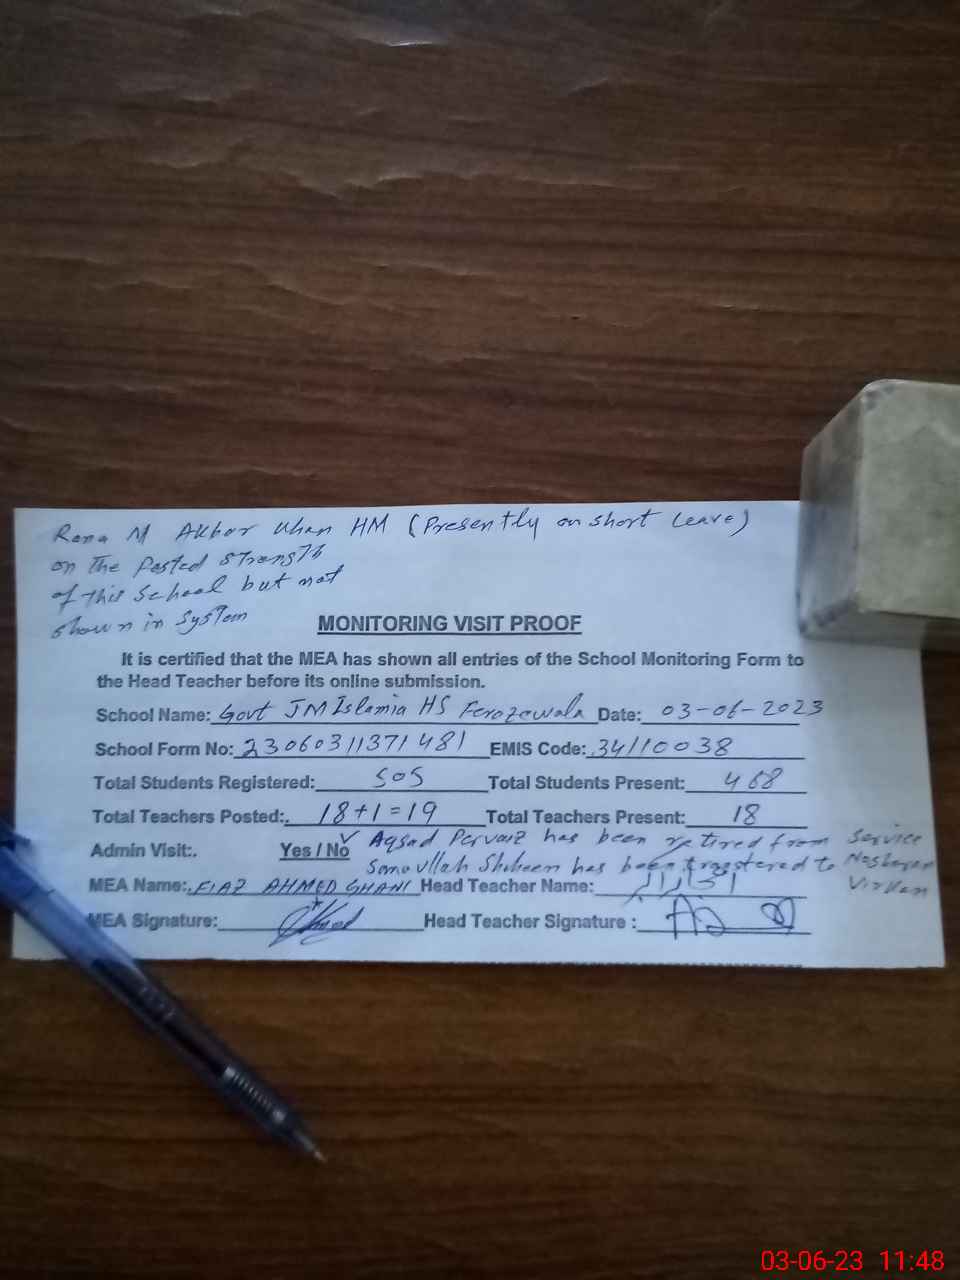 Rana M Akbar Khan HM (Presently on short Leave)
on The Posted Strength
of this School but not
shown in System
MONITORING VISIT PROOF
It is certified that the MEA has shown all entries of the School Monitoring Form to
the Head Teacher before its online submission.
School Name: Govt JM Islamia HS Ferozewala Date: 03-06-2023
School Form No: 23060311371481 EMIS Code: 34110038
Total Students Registered: 505 Total Students Present: 468
Total Teachers Posted:. 18+1=19 Total Teachers Present: 18
Aqsad Pervaiz has been retired from Service
Admin Visit:. Yes / No ✓
Sanaullah Shaheen has been transfered to Noshera Virkan
MEA Name:. FIAZ AHMED GHANI Head Teacher Name:
MEA Signature: Head Teacher Signature :
03-06-23 11:48